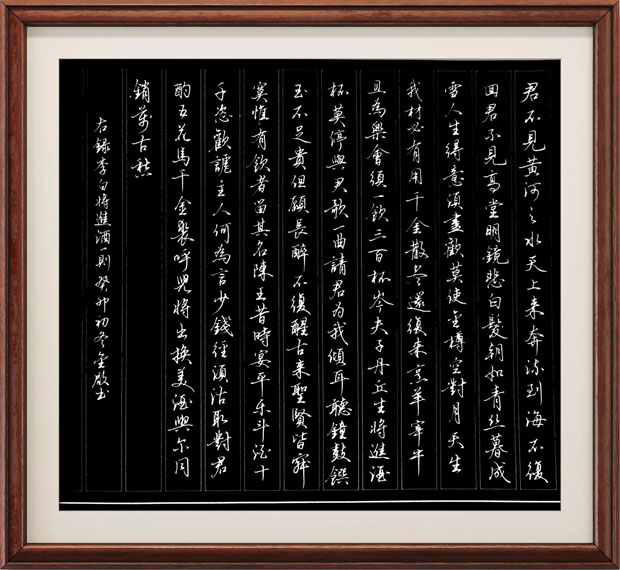 君不見黃河之水天上来奔流到海不復
回君不見高堂明鏡悲白髮朝如青丝暮成
雪人生得意須盡歡莫使金樽空對月天生
我材必有用千金散尽還復来烹羊宰牛
且為樂會須一飲三百杯岑夫子丹丘生將進酒
杯莫停與君歌一曲請君为我傾耳聽鐘鼓饌
玉不足貴但願長醉不復醒古来聖賢皆寂
寞惟有飲者留其名陳王昔時宴平乐斗酒十
千恣歡謔主人何為言少錢徑須沽取對君
酌五花馬千金裘呼兒將出換美酒與尔同
銷萬古愁
右錄李白將進酒一則癸卯初冬金啟书